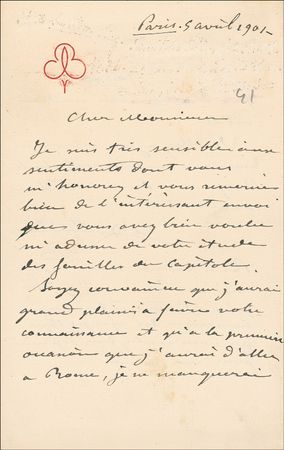 Paris. 5 avril 1901-
41
Cher Monsieur
Je suis très sensible aux
sentiments dont vous
m'honorez et vous remercie
bien de l'intéressant envoi
que vous avez bien voulu
m'adresser de votre étude
des fouilles du Capitole.
Soyez convaincu que j'aurai
grand plaisir à faire votre
connaissance et qu'à la première
occasion que j'aurai d'aller
a Rome, je ne manquerai